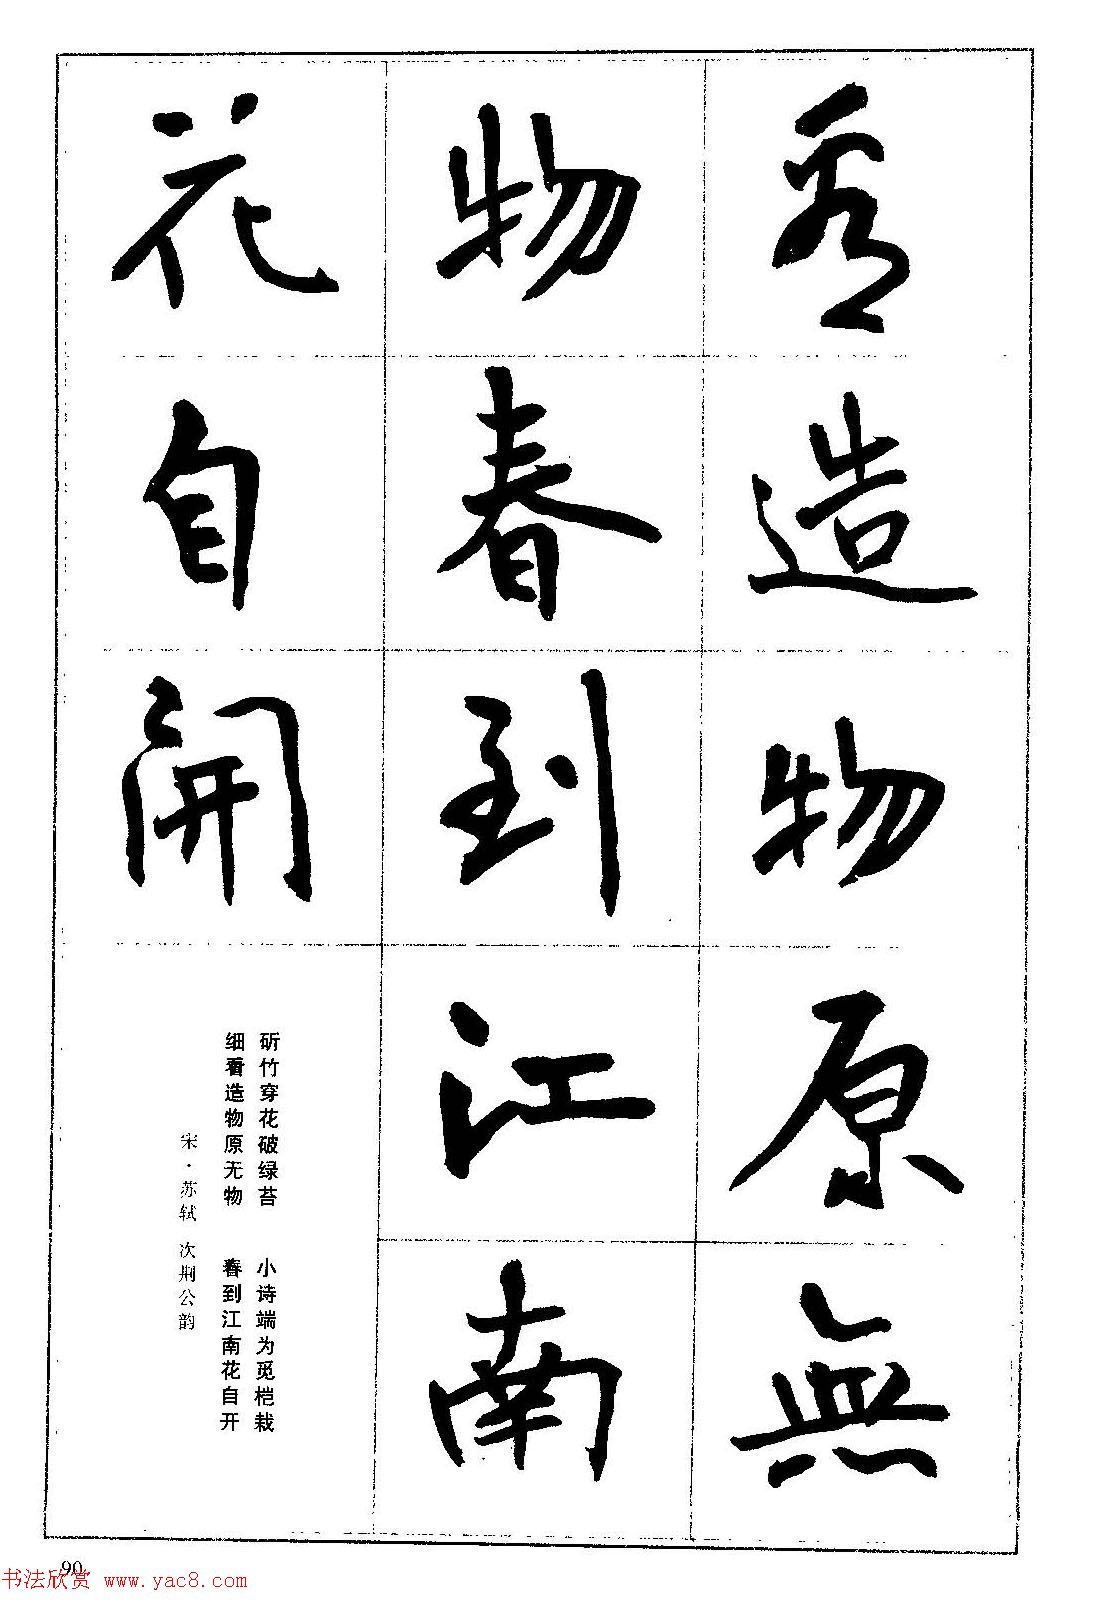 看造物原無
物春到江南
花自开
斫竹穿花破绿苔 小诗端为觅桤栽
细看造物原无物 春到江南花自开
宋·苏轼 次荆公韵
90
书法欣赏 www.yac8.com